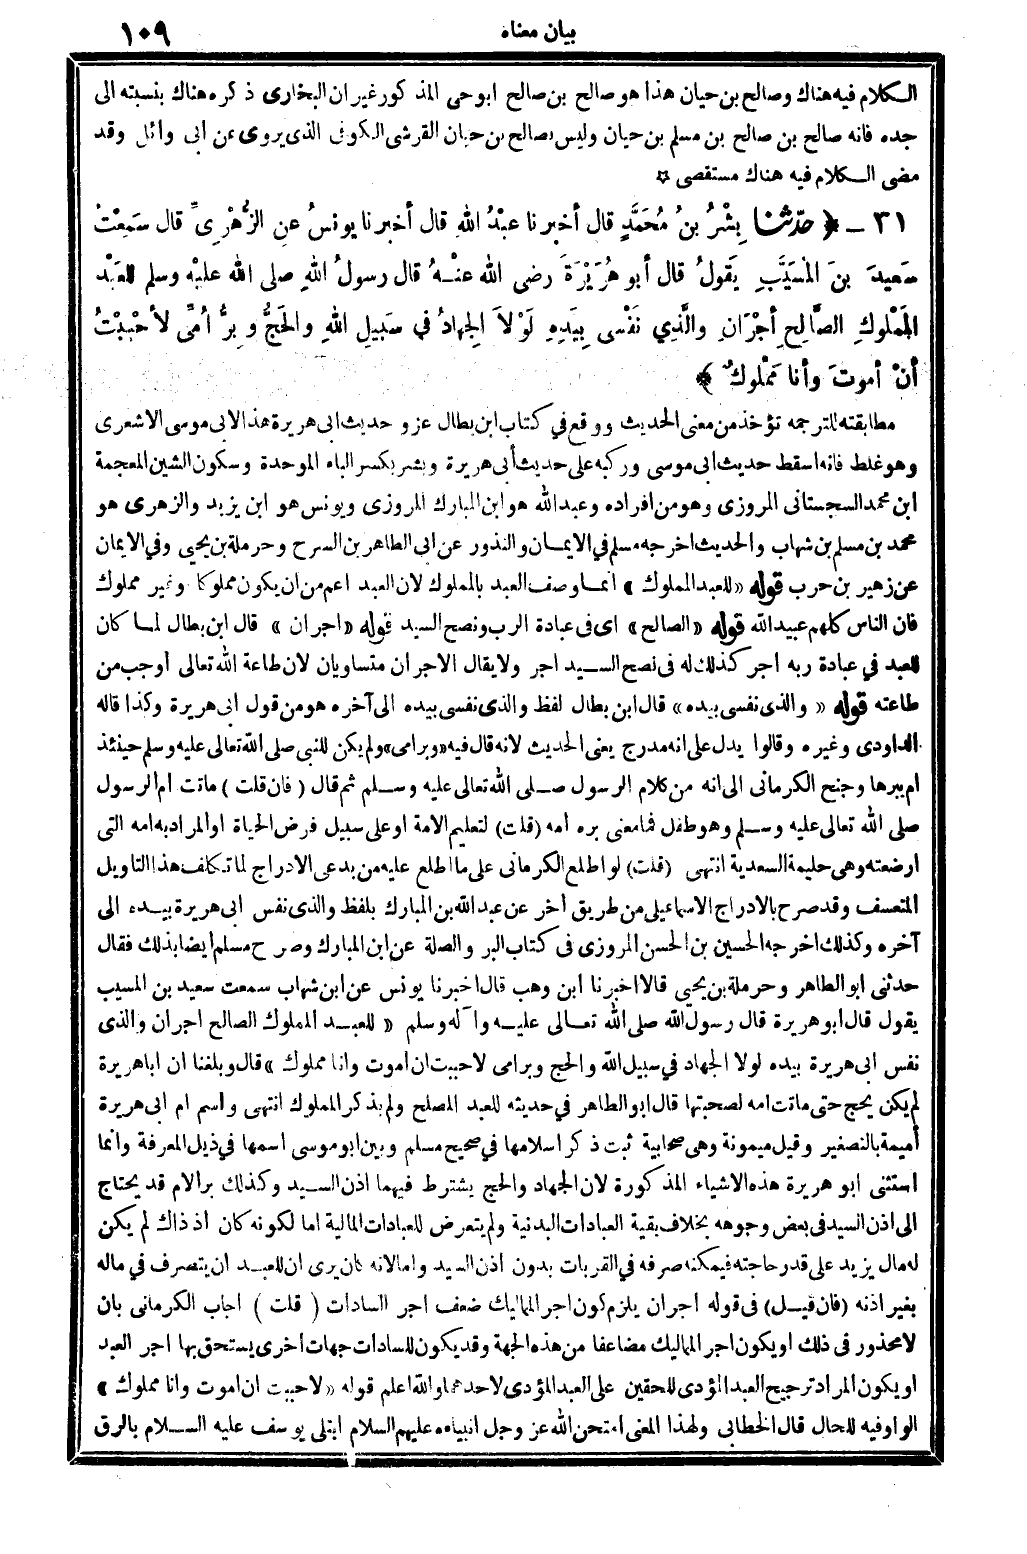 بيان معناه
١٠٩
الكلام فيه هناك وصالح بن حيان هذا هو صالح بن صالح ابو حى المذكور غير ان البخارى ذكره هناك بنسبته الى
جده فانه صالح بن صالح بن مسلم بن حيان وليس بصالح بن حيان القرشى الكوفى الذى يروى عن ابى وائل وقد
مضى الكلام فيه هناك مستقصى ☆
٣١ ــ ﴿ حدّثنا بِشْرُ بنُ مُحَمَّدٍ قال أخبرنا عبْدُ اللهِ قال أخبرنا يونسُ عنِ الزُّهْرِىِّ قال سَمِعْتُ
سَعِيدَ بنَ المُسَيَّبِ يَقولُ قال أبو هُرَيْرَةَ رضى الله عنْهُ قال رسولُ اللهِ صلى الله عليْه وسلم للعَبْدِ
المَمْلوكِ الصَّالِحِ أجْرَانِ والَّذِي نَفْسى بِيَدِهِ لَوْلاَ الجِهادُ في سَبيلِ اللهِ والحَجُّ وبِرُّ أُمِّى لأحْبَبْتُ
أنْ أموتَ وأنا مَمْلوكٌ ﴾
مطابقته للترجمه تؤخذ من معنى الحديث ووقع في كتاب ابن بطال عزو حديث ابى هريرة هذا لابى موسى الاشعرى
وهو غلط فانه اسقط حديث ابى موسى وركبه على حديث أبى هريرة وبشر بكسر الباء الموحدة وسكون الشين المعجمة
ابن محمد السجستانى المروزى وهو من افراده وعبد الله هو ابن المبارك المروزى ويونس هو ابن يزيد والزهرى هو
محمد بن مسلم بن شهاب والحديث اخرجه مسلم في الايمان والنذور عن ابى الطاهر بن السرح وحرملة بن يحيى وفي الايمان
عن زهير بن حرب قوله «للعبد المملوك» انما وصف العبد بالمملوك لان العبد اعم من ان يكون مملوكا وغير مملوك
فان الناس كلهم عبيد الله قوله «الصالح» اى فى عبادة الرب ونصح السيد قوله «اجران» قال ابن بطال لما كان
للعبد في عبادة ربه اجر كذلك له فى نصح السيد اجر ولا يقال الاجران متساويان لان طاعة الله تعالى أوجب من
طاعته قوله «والذى نفسى بيده» قال ابن بطال لفظ والذى نفسى بيده الى آخره هو من قول ابى هريرة وكذا قاله
الداودى وغيره وقالوا يدل على انه مدرج يعنى الحديث لانه قال فيه «وبر امى» ولم يكن للنبى صلى الله تعالى عليه وسلم حينئذ
ام يبرها وجنح الكرمانى الى انه من كلام الرسول صلى الله تعالى عليه وسلم ثم قال (فان قلت) ماتت ام الرسول
صلى الله تعالى عليه وسلم وهو طفل فما معنى بره أمه (قلت) لتعليم الامة او على سبيل فرض الحياة او المراد به امه التى
ارضعته وهى حليمة السعدية انتهى (قلت) لو اطلع الكرمانى على ما اطلع عليه من يدعى الادراج لما تكلف هذا التاويل
المتعسف وقد صرح بالادراج الاسماعيلى من طريق أخر عن عبد الله بن المبارك بلفظ والذى نفس ابى هريرة بيده الى
آخره وكذلك اخرجه الحسين بن الحسن المروزى فى كتاب البر والصلة عن ابن المبارك وصرح مسلم أيضا بذلك فقال
حدثنى ابو الطاهر وحرملة بن يحيى قالا اخبرنا ابن وهب قال اخبرنا يونس عن ابن شهاب سمعت سعيد بن المسيب
يقول قال أبو هريرة قال رسول الله صلى الله تعالى عليه وآله وسلم «للعبد المملوك الصالح اجران والذى
نفس ابى هريرة بيده لولا الجهاد في سبيل الله والحج وبر امى لاحببت ان أموت وانا مملوك» قال وبلغنا ان اباهريرة
لم يكن يحج حتى ماتت امه لصحبتها قال ابو الطاهر في حديثه للعبد المصلح ولم يذكر المملوك انتهى واسم ام ابى هريرة
أميمة بالتصغير وقيل ميمونة وهى صحابية ثبت ذكر اسلامها في صحيح مسلم وبين ابو موسى اسمها في ذيل المعرفة وانما
استثنى ابو هريرة هذه الاشياء المذكورة لان الجهاد والحج يشترط فيهما اذن السيد وكذلك بر الام قد يحتاج
الى اذن السيد فى بعض وجوهه بخلاف بقية العبادات البدنية ولم يتعرض للعبادات المالية اما لكونه كان اذ ذاك لم يكن
له مال يزيد على قدر حاجته فيمكنه صرفه في القربات بدون اذن السيد واما لانه كان يرى ان للعبد ان يتصرف في ماله
بغير اذنه (فان قيل) فى قوله أجران يلزم كون اجر المماليك ضعف اجر السادات (قلت) اجاب الكرمانى بان
لا محذور فى ذلك او يكون اجر المماليك مضاعفا من هذه الجهة وقد يكون للسادات جهات أخرى يستحق بها اجر العبد
او يكون المراد ترجيح العبد المؤدى للحقين على العبد المؤدى لاحدهما والله اعلم قوله «لاحببت ان اموت وانا مملوك»
الواو فيه للحال قال الخطابى ولهذا المعنى امتحن الله عز وجل انبياءه عليهم السلام ابتلى يوسف عليه السلام بالرق